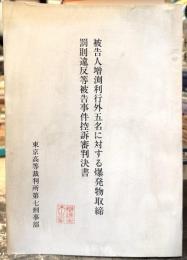 被告人増渕利行外五名に対する爆発物取締
罰則違反等被告事件控訴審判決書
東京高等裁判所第七刑事部